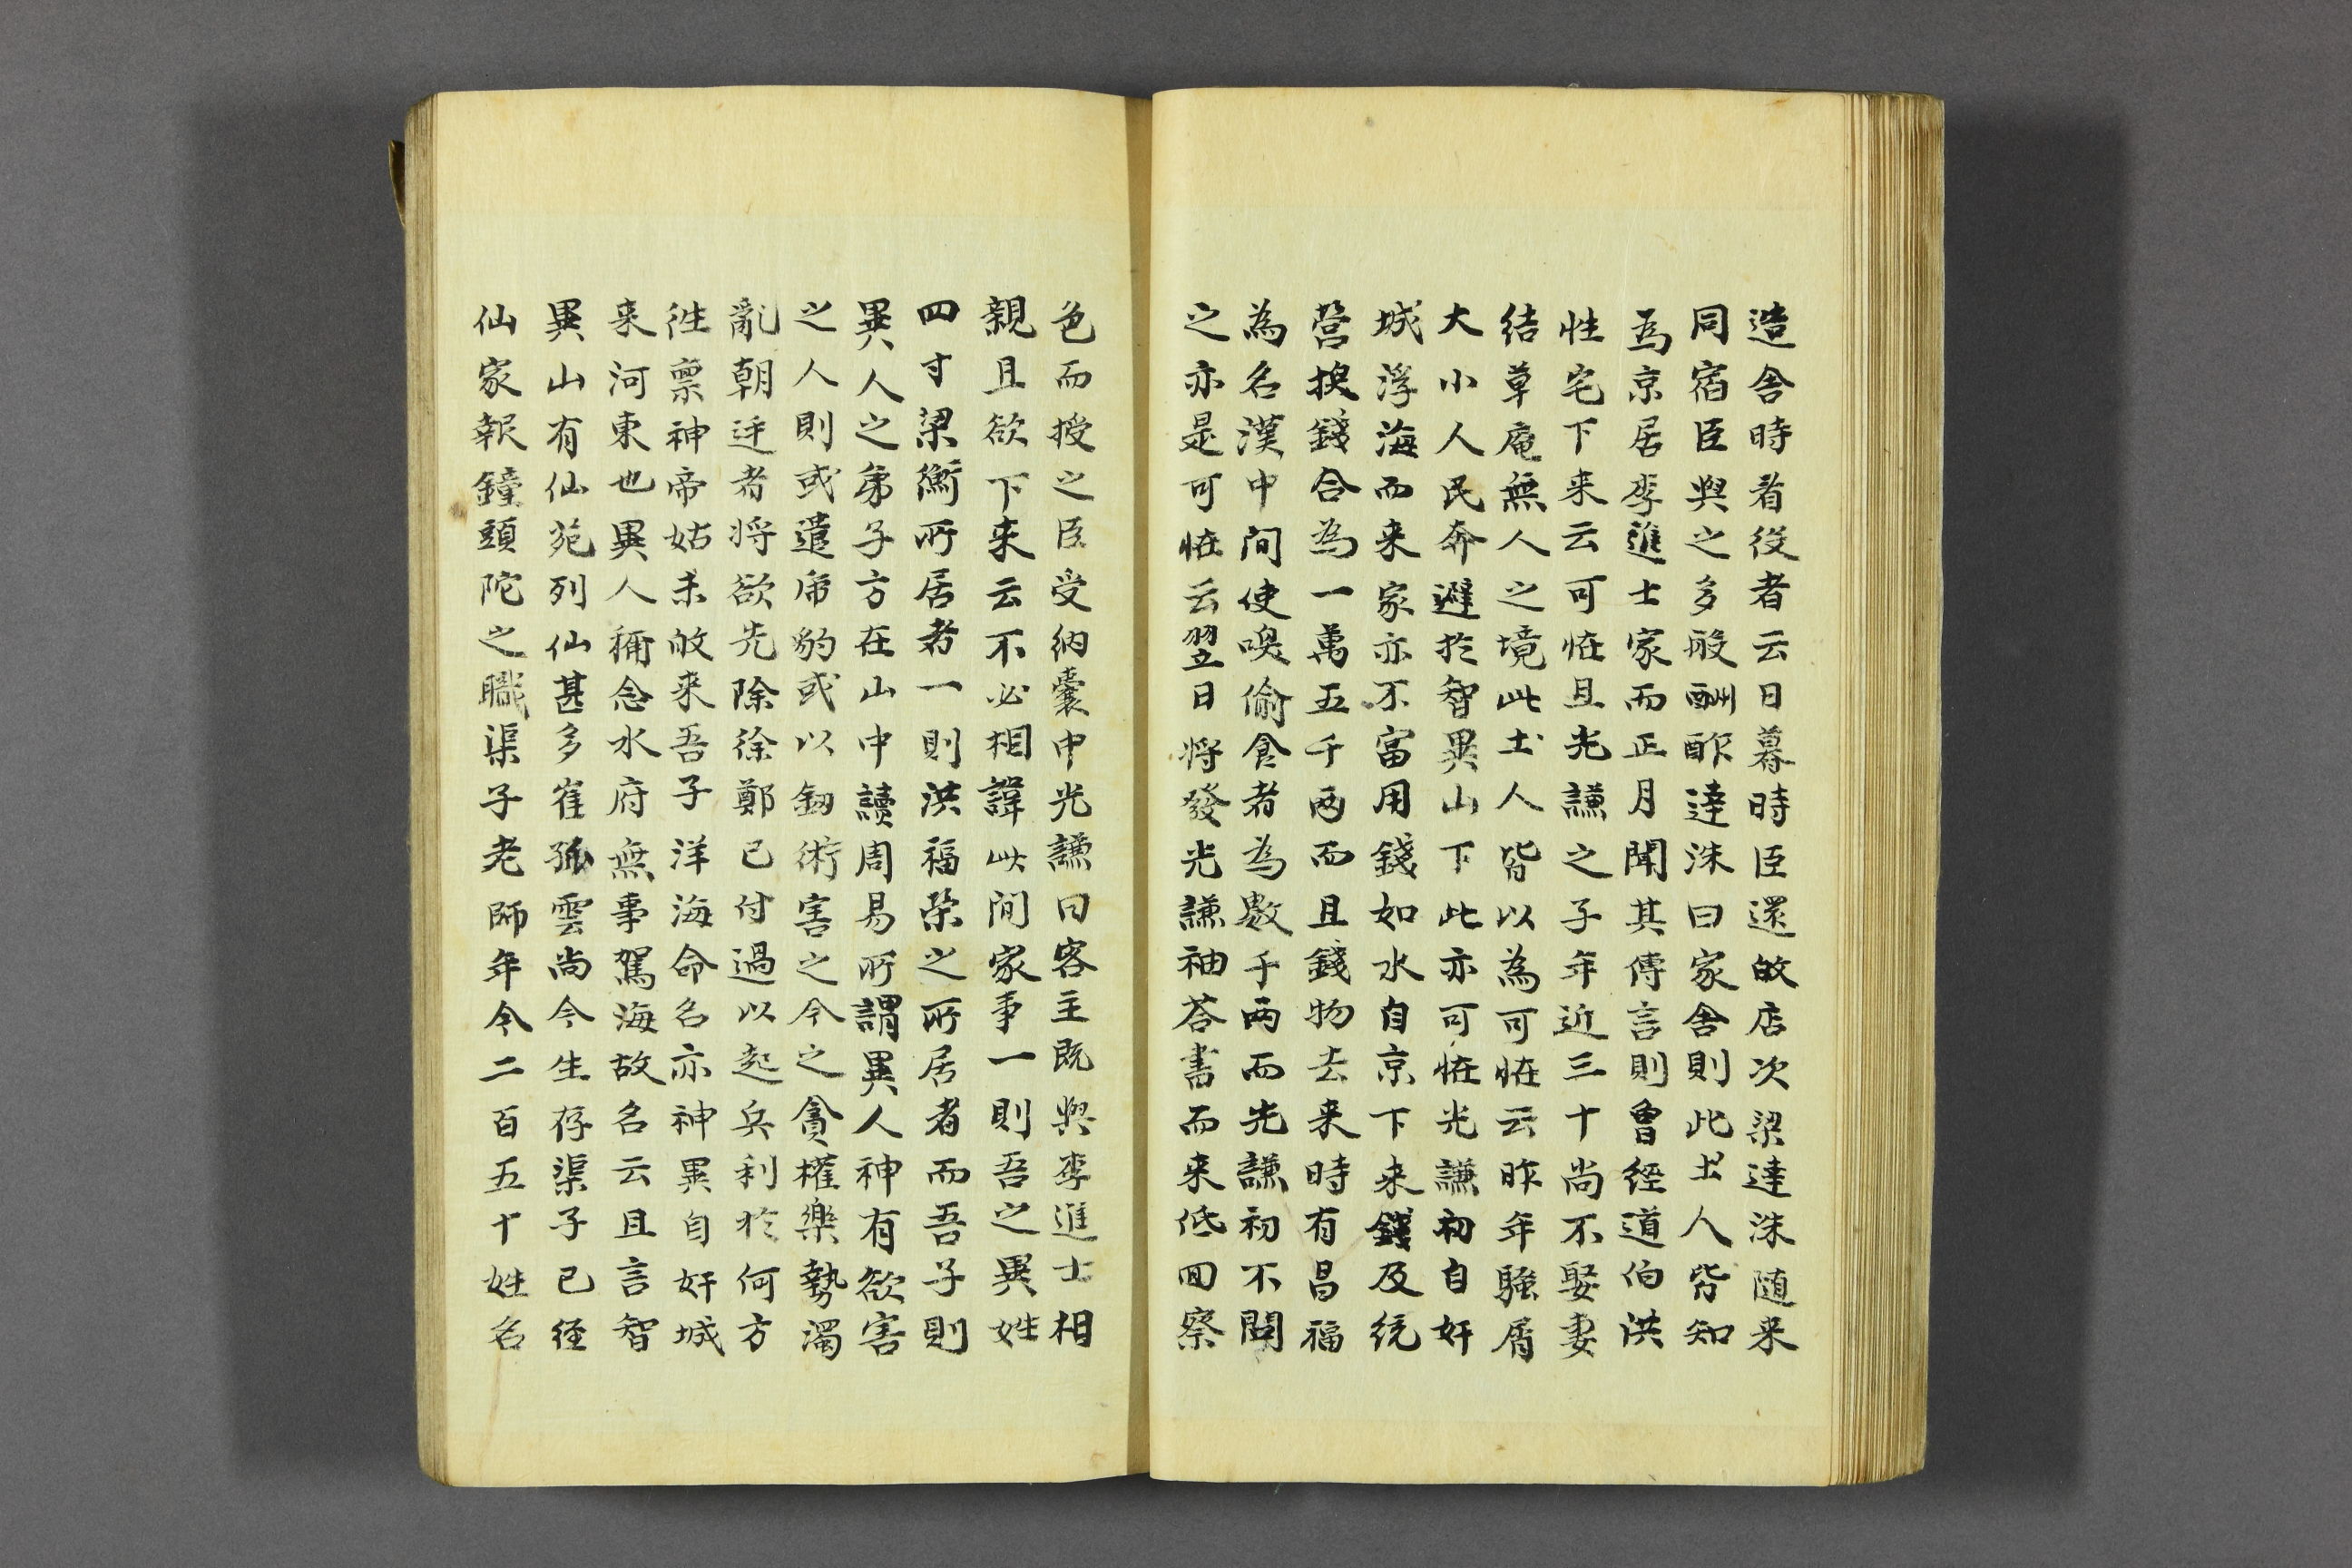 造舍時看役者云日暮時臣還㱕店次梁達洙随来
同宿臣與之多般酬酢達洙曰家舍則此土人皆知
爲京居李進士家而正月聞其傳言則曾経道伯洪
性宅下来云可恠且光謙之子年近三十尚不娶妻
结草庵無人之境此土人皆以為可恠云昨年騷屑
大小人民奔避扵智異山下此亦可恠光謙初自奸
城浮海而来家亦不富用錢如水自京下来錢及统
营换錢合為一萬五千两而且錢物去来時有昌福
為名漢中间使喚偷食者為數千两而光謙初不問
之亦是可恠云翌日将發光謙袖答書而来低回察
色而授之臣受納囊中光謙曰客主既與李進士相
親且欲下来云不必相諱此间家事一則吾之異姓
四寸梁衡所居者一則洪福荣之所居者而吾子則
異人之弟子方在山中讀周易所謂異人神有欲害
之人則或遣虎豹或以釼術害之今之貪權樂勢濁
亂朝廷者将欲先除徐鄭已付過以起兵利扵何方
徃禀神帝姑未㱕来吾子洋海命名亦神異自奸城
来河東也異人稱念水府無事駕海故名云且言智
異山有仙苑列仙甚多崔孤雲尚今生存渠子已径
仙家報鐘頭陀之職渠子老師年今二百五十姓名